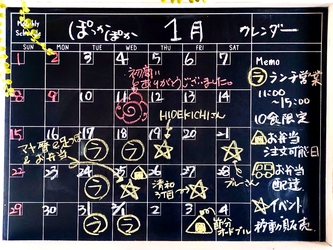 Monthly Schedule
ぽっかぽか〜 1月 カレンダー
SUN MON TUE WED THU FRI SAT
1 2 3 4 5 6 7
初商い
ありがとうございました。
8 9 10 11 12 13 14
HIDEKICHIさん
15 16 17 18 19 20 21
& お弁当
ラ ラ
22 23 24 25 26 27 28
清和
3丁目
ブルーさん
ラ
29 30 31
ラ ラ
節分
オードブル
Memo
ラ ランチ営業
11:00
〜15:00
10食限定
お弁当
注文可能日
お弁当
配達
イベント
移動販売